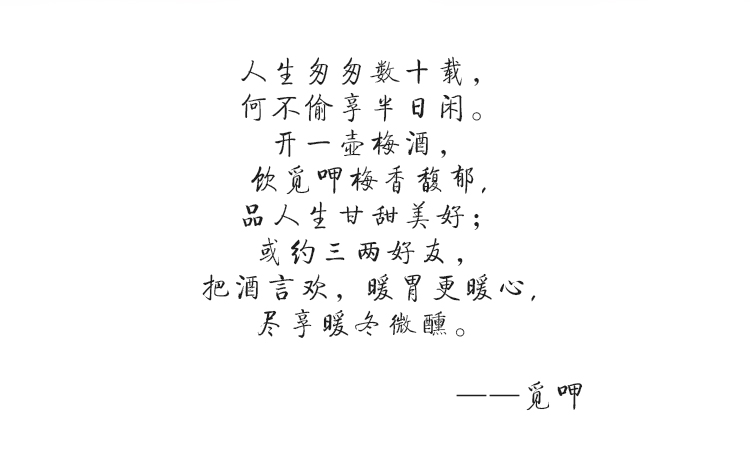 人生匆匆数十载，
何不偷享半日闲。
开一壶梅酒，
饮觅呷梅香馥郁，
品人生甘甜美好；
或约三两好友，
把酒言欢，暖胃更暖心，
尽享暖冬微醺。
——觅呷